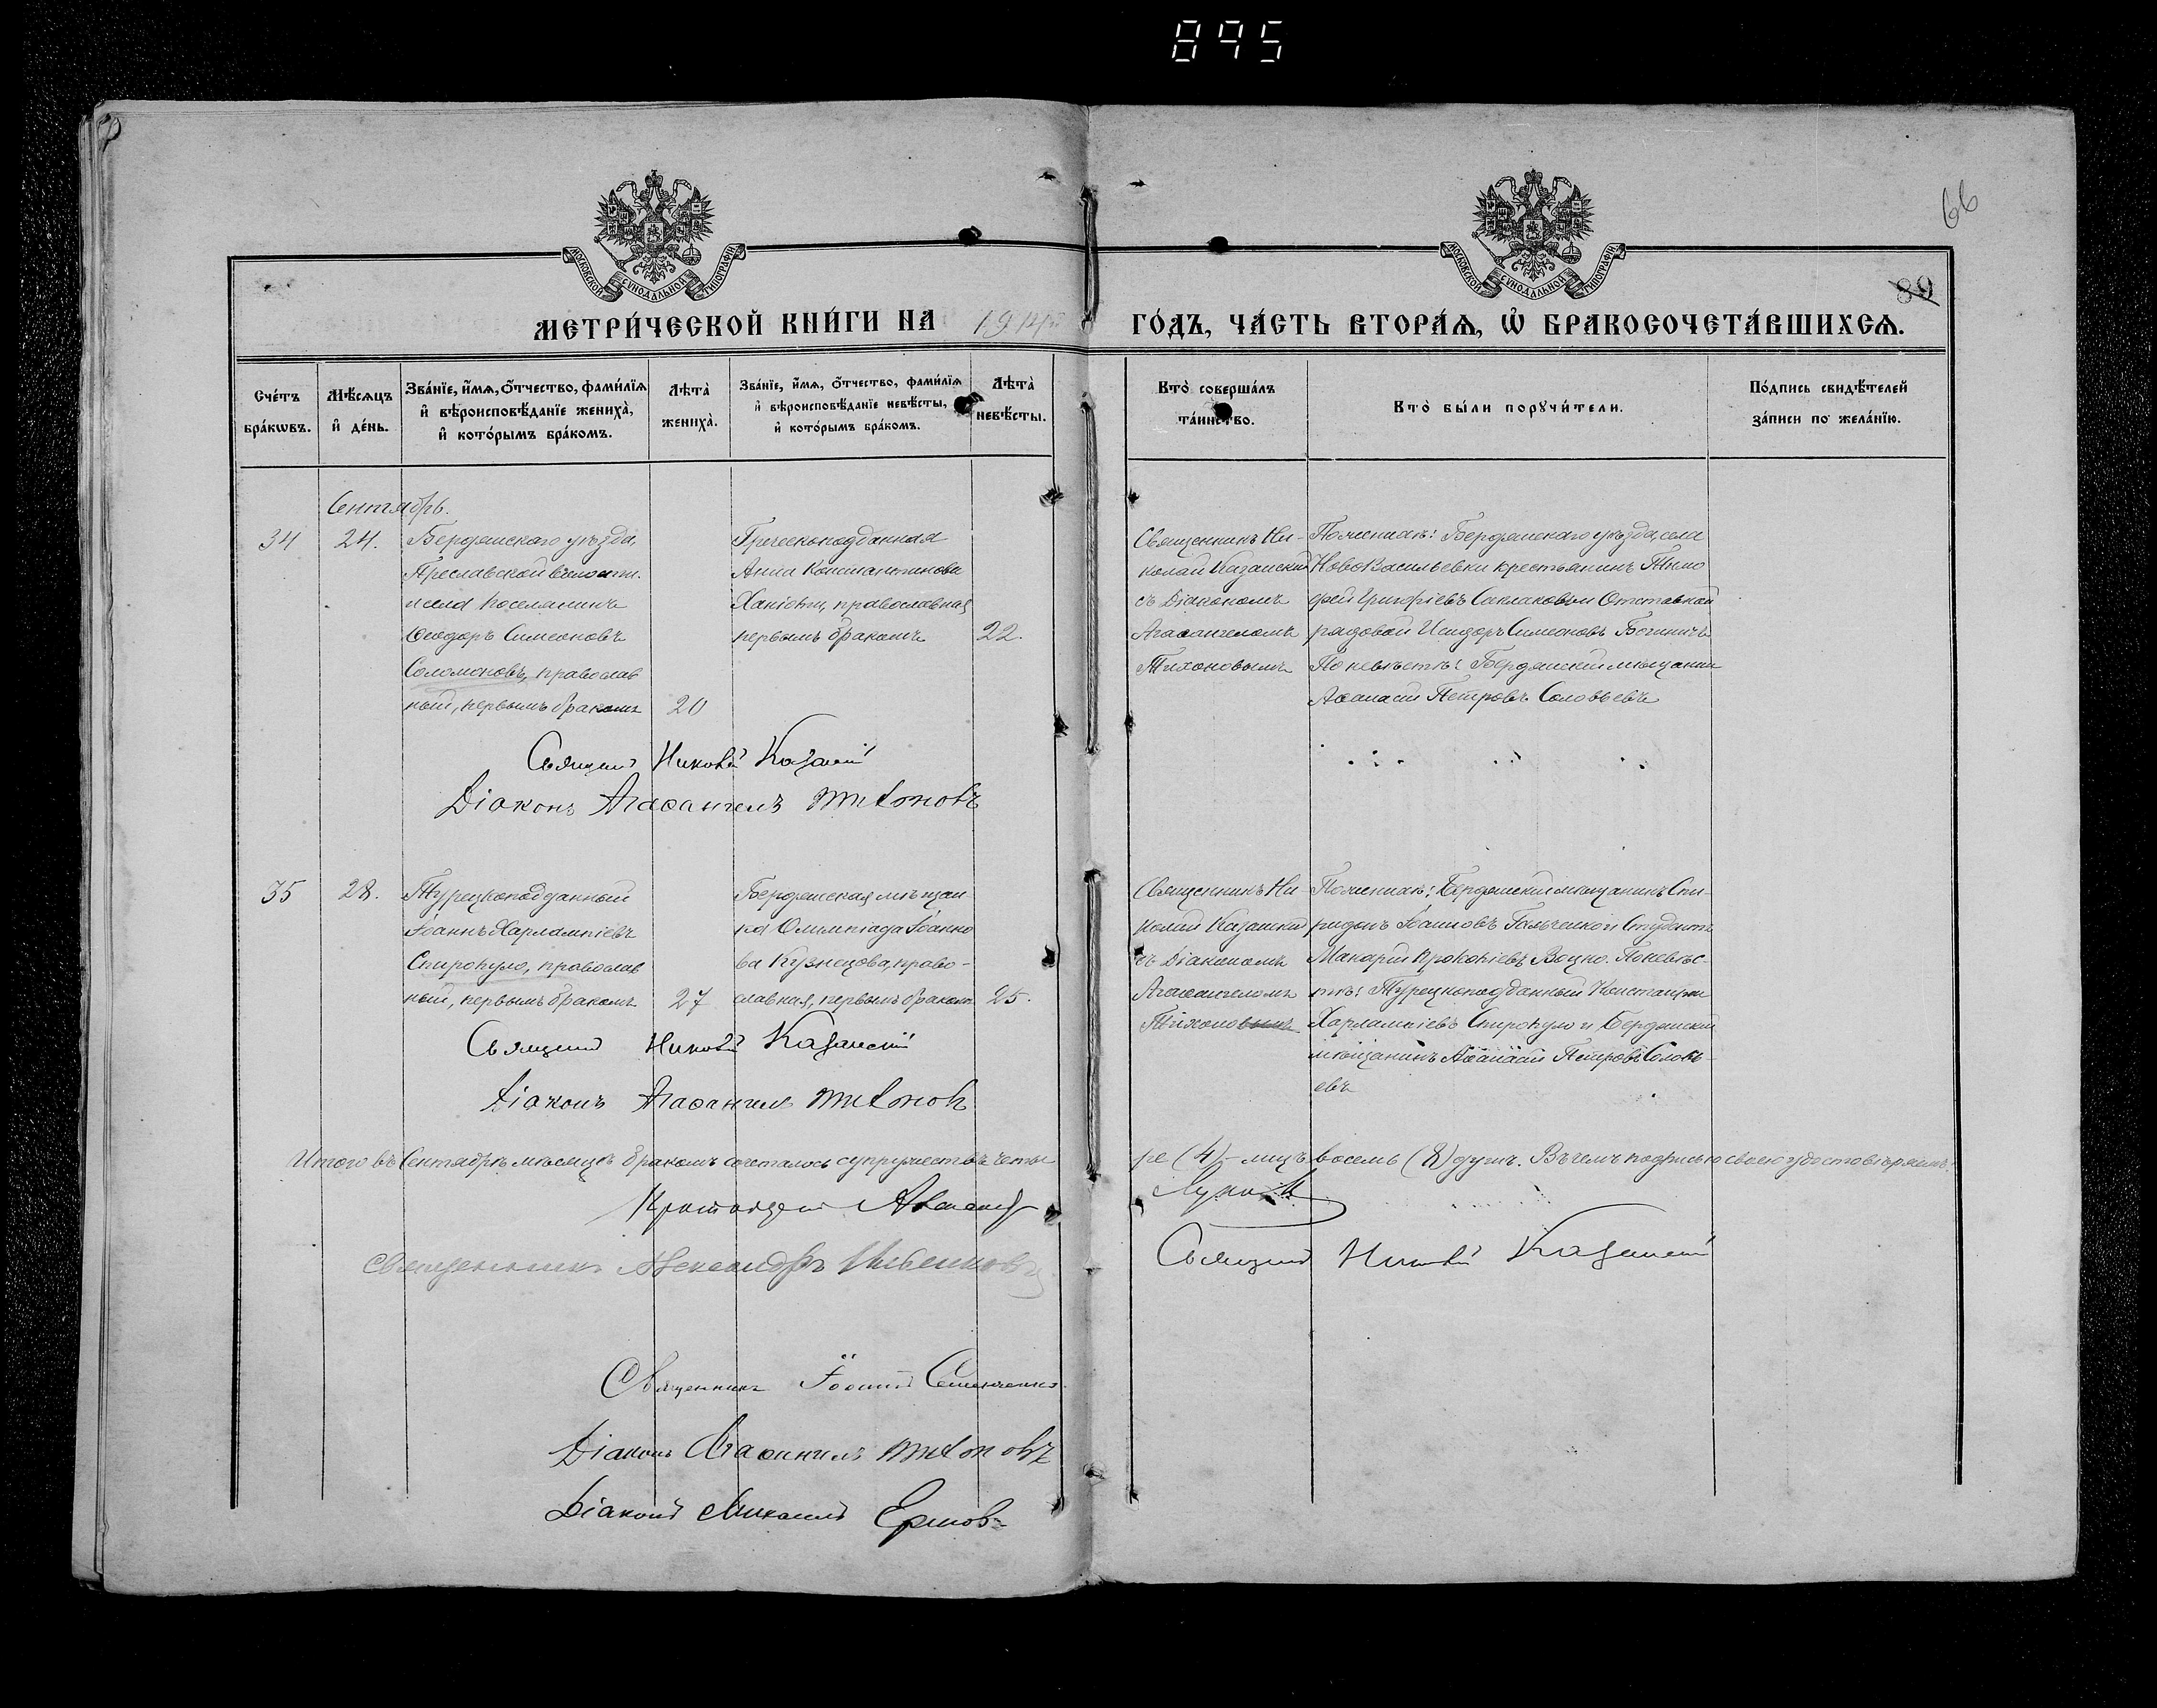 895
66
89
МОСКОВСКОЙ СѴНОДАЛЬНОЙ ТИПОГРАФІИ
МОСКОВСКОЙ СѴНОДАЛЬНОЙ ТИПОГРАФІИ
МЕТРИ́ЧЕСКОЙ КНИ́ГИ НА
ГО́ДЪ, ЧА́СТЬ ВТОРА́Ѧ, Ѡ҆ БРАКОСОЧЕТА́ВШИХСѦ.
Сче́тъ бра́кѡвъ.
Мѣ́сѧцъ и҆ де́нь.
Зва́нїе, и҆́мѧ, ѻ҆́тчество, фами́лїѧ
и҆ вѣроисповѣ́данїе жениха̀,
и҆ кото́рымъ бра́комъ.
Лѣта̀ жениха̀.
Зва́нїе, и҆́мѧ, ѻ҆́тчество, фами́лїѧ
и҆ вѣроисповѣ́данїе невѣ́сты,
и҆ кото́рымъ бра́комъ.
Лѣта̀ невѣ́сты.
Кто̀ соверша́лъ
та́инство.
Кто̀ бы́ли порꙋчи́тели.
По́дпись свидѣ́телей
за́писи по жела́нїю.
Сентябрь.
34
24.
Бердянскаго уѣзда,
Преславской волости
и села поселянинъ
Ѳеодоръ Симеоновъ
Соломоновъ, православ
ный, первымъ бракомъ
20
Греческоподданная
Анна Константинова
православная
первымъ бракомъ
22.
Священникъ Ни-
колай Казанскій
съ Діакономъ
Агаѳангеломъ
Тихоновымъ
По женихѣ: Бердянскаго уѣзда, села
НовоВасильевки крестьянинъ Тимо
фей Григоріевъ и Отставной
рядовой Исидоръ Симеоновъ
По невѣстѣ: Бердянскій мѣщанин
Аѳанасій Петровъ Соловьевъ
Священ Николай Казанскій
Діаконъ Агаѳангелъ Тихоновъ
35
28.
Турецкоподданный
Іоаннъ Харлампіевъ
Спиропуло, православ
ный, первымъ бракомъ
27
Бердянская мѣщан
ка Олимпіада Іоанно
ва Кузнецова, право-
славная, первымъ бракомъ
25.
Священникъ Ни-
колай Казанскій
съ Діакономъ
Агаѳангеломъ
Тихоновымъ
По женихѣ: Бердянскій мѣщанинъ Спи-
ридонъ Іоанновъ и Студентъ
Макарій Прокопіевъ Воцко. По невѣс-
тѣ: Турецкоподданный Константин
Харлампіевъ Спиропуло и Бердянскій
мѣщанинъ Аѳанасій Петровъ Соловь-
евъ
Священ Николай Казанскій
Діаконъ Агаѳангелъ Тихоновъ
Итого въ Сентябрѣ мѣсяцѣ бракомъ сочеталось супружествъ четы
ре (4) – лицъ восемь (8) душъ. Въ чемъ подписью своею удостовѣряемъ:
Протоіерей
Священникъ Николай Казанскій
Священникъ Александръ
Священникъ Іоаннъ
Діаконъ Агаѳангелъ Тихоновъ
Діаконъ Михаилъ Ершовъ